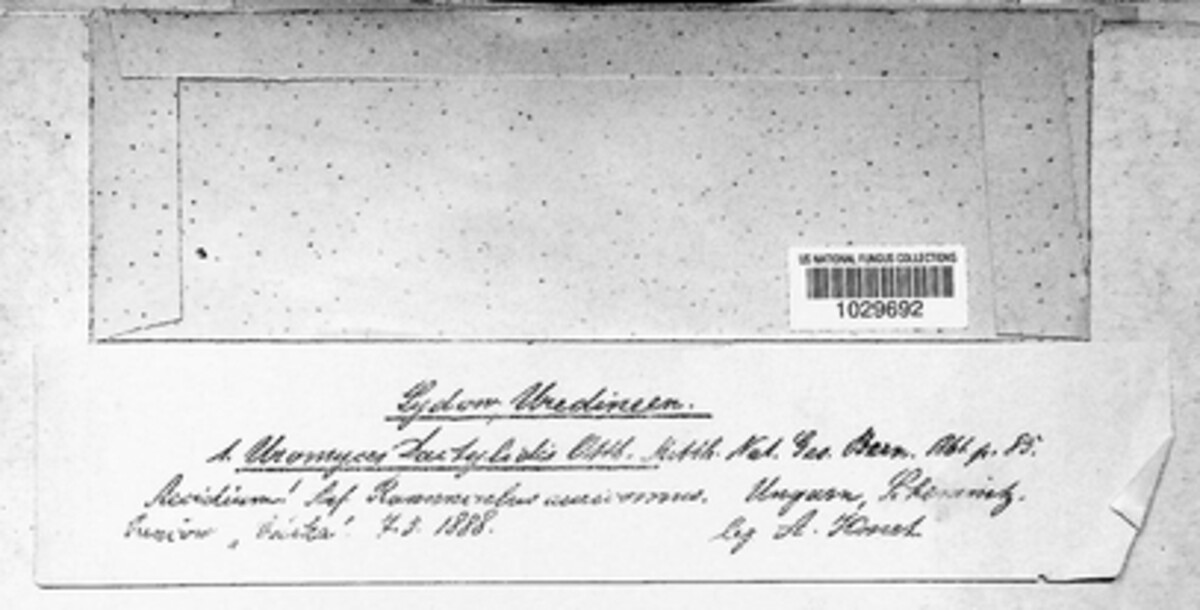 US NATIONAL FUNGUS COLLECTIONS
1029692
Sydow, Uredineen.
1. Uromyces Dactylidis Otth. Mitth. Nat. Ges. Bern. 1861. p. 85.
Aecidium! Auf Ranunculus auricomus. Ungarn,
7.5. 1888. leg A. Kmet